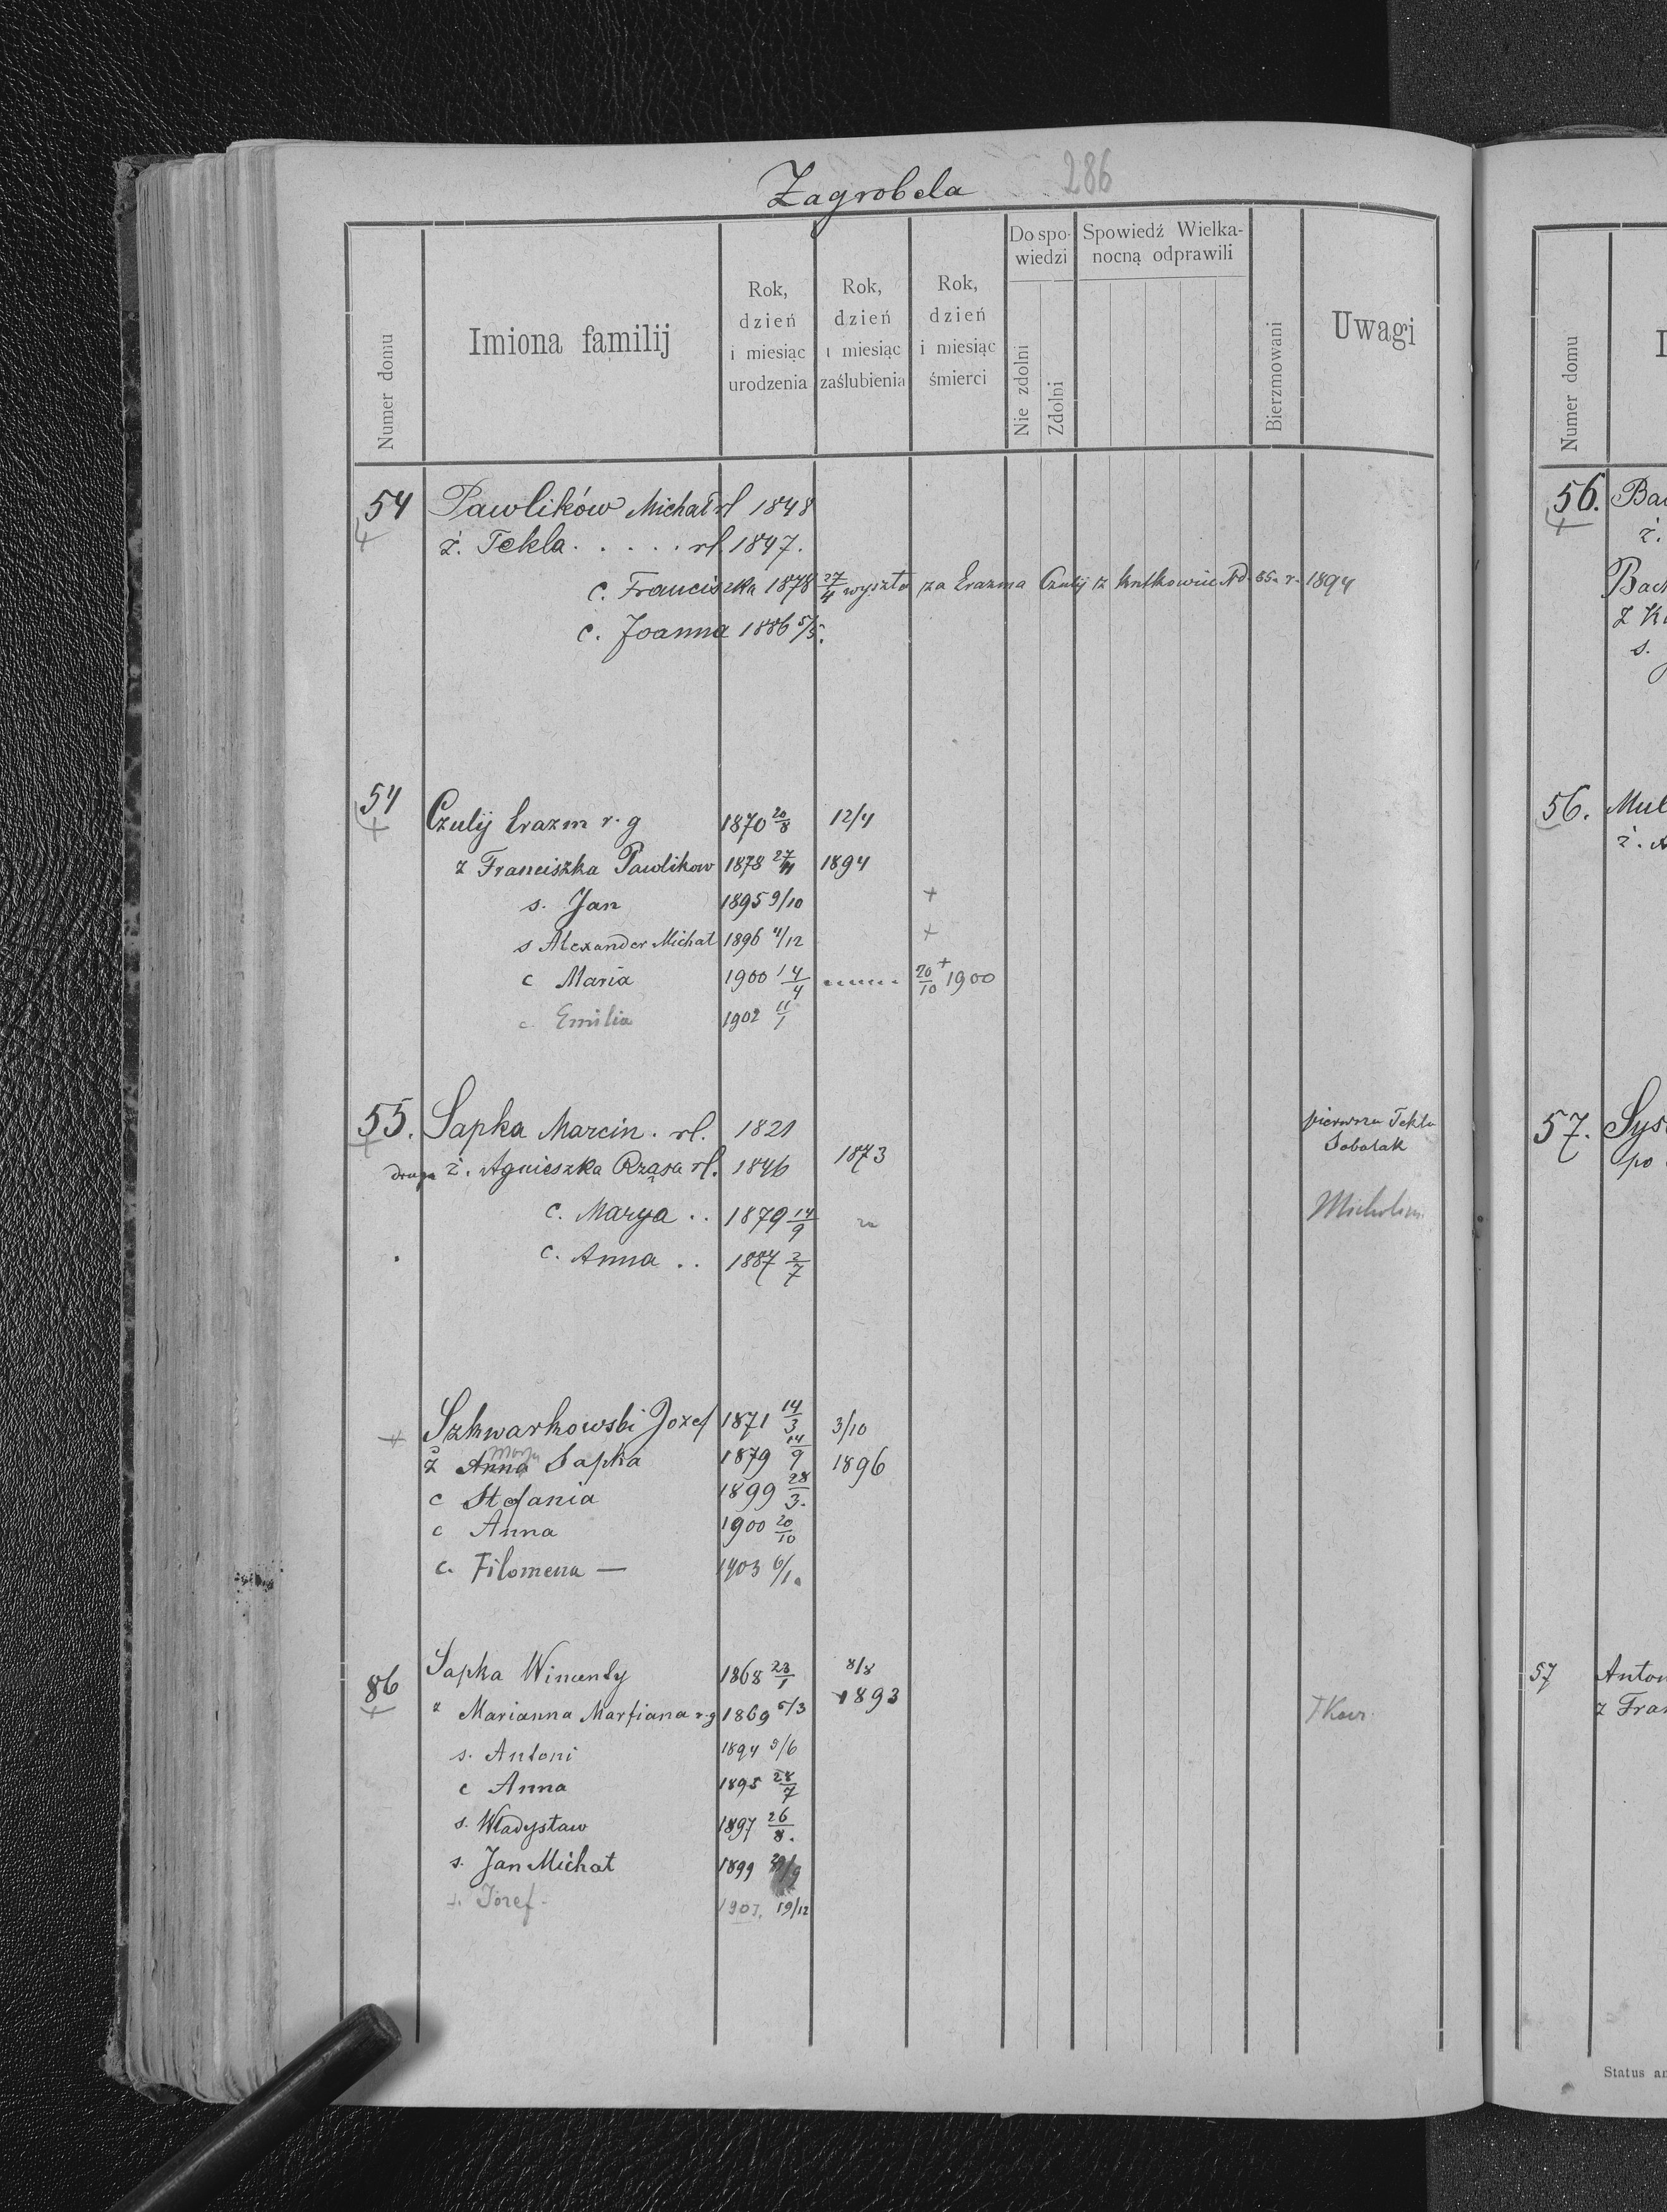 Zagrobela 286
Numer domu
Imiona familij
Rok,
dzień
i miesiąc
urodzenia
Rok,
dzień
i miesiąc
zaślubienia
Rok,
dzień
i miesiąc
śmierci
Do spo-
wiedzi
Nie zdolni
Zdolni
Spowiedź Wielka-
nocną odprawili
Bierzmowani
Uwagi
54 Pawlików Michał rl 1848
ż. Tekla . . . . . rl. 1847.
c. Franciszka 1878 27/4 wyszła za Erazma Czulij z Nd. 65. r. 1894
c. Joanna 1886 5/5.
54 Czulij Erazm r. g 1870 20/8 12/4
z Franciszka Pawlikow 1878 27/4 1894
s. Jan 1895 9/10 +
s Alexander Michał 1896 4/12 +
c Maria 1900 14/4 20/10 + 1900
c. Emilia 1902 11/1
55. Sapka Marcin . rl. 1821 pierwsza Tekla
Sobolak
druga ż. Agnieszka Rząsa rl. 1846 1873
c. Marya . . 1879 14/9
c. Anna . . 1887 2/7
+ Szkwarkowski Jozef 1871 14/3 3/10
ż Anna Marya Sapka 1879 14/9 1896
c Stefania 1899 28/3.
c Anna 1900 20/10
c. Filomena — 1903 6/1.
86 Sapka Wincenty 1868 23/1 8/8
ż Marianna Marfiana r. g 1869 5/3 1893
s. Antoni 1894 9/6
c Anna 1895 28/7
s. Władysław 1897 26/8.
s. Jan Michał 1899 /9
s. Józef - 19/12
Numer domu
56.
56.
57.
po
57
ż.
s.
Status